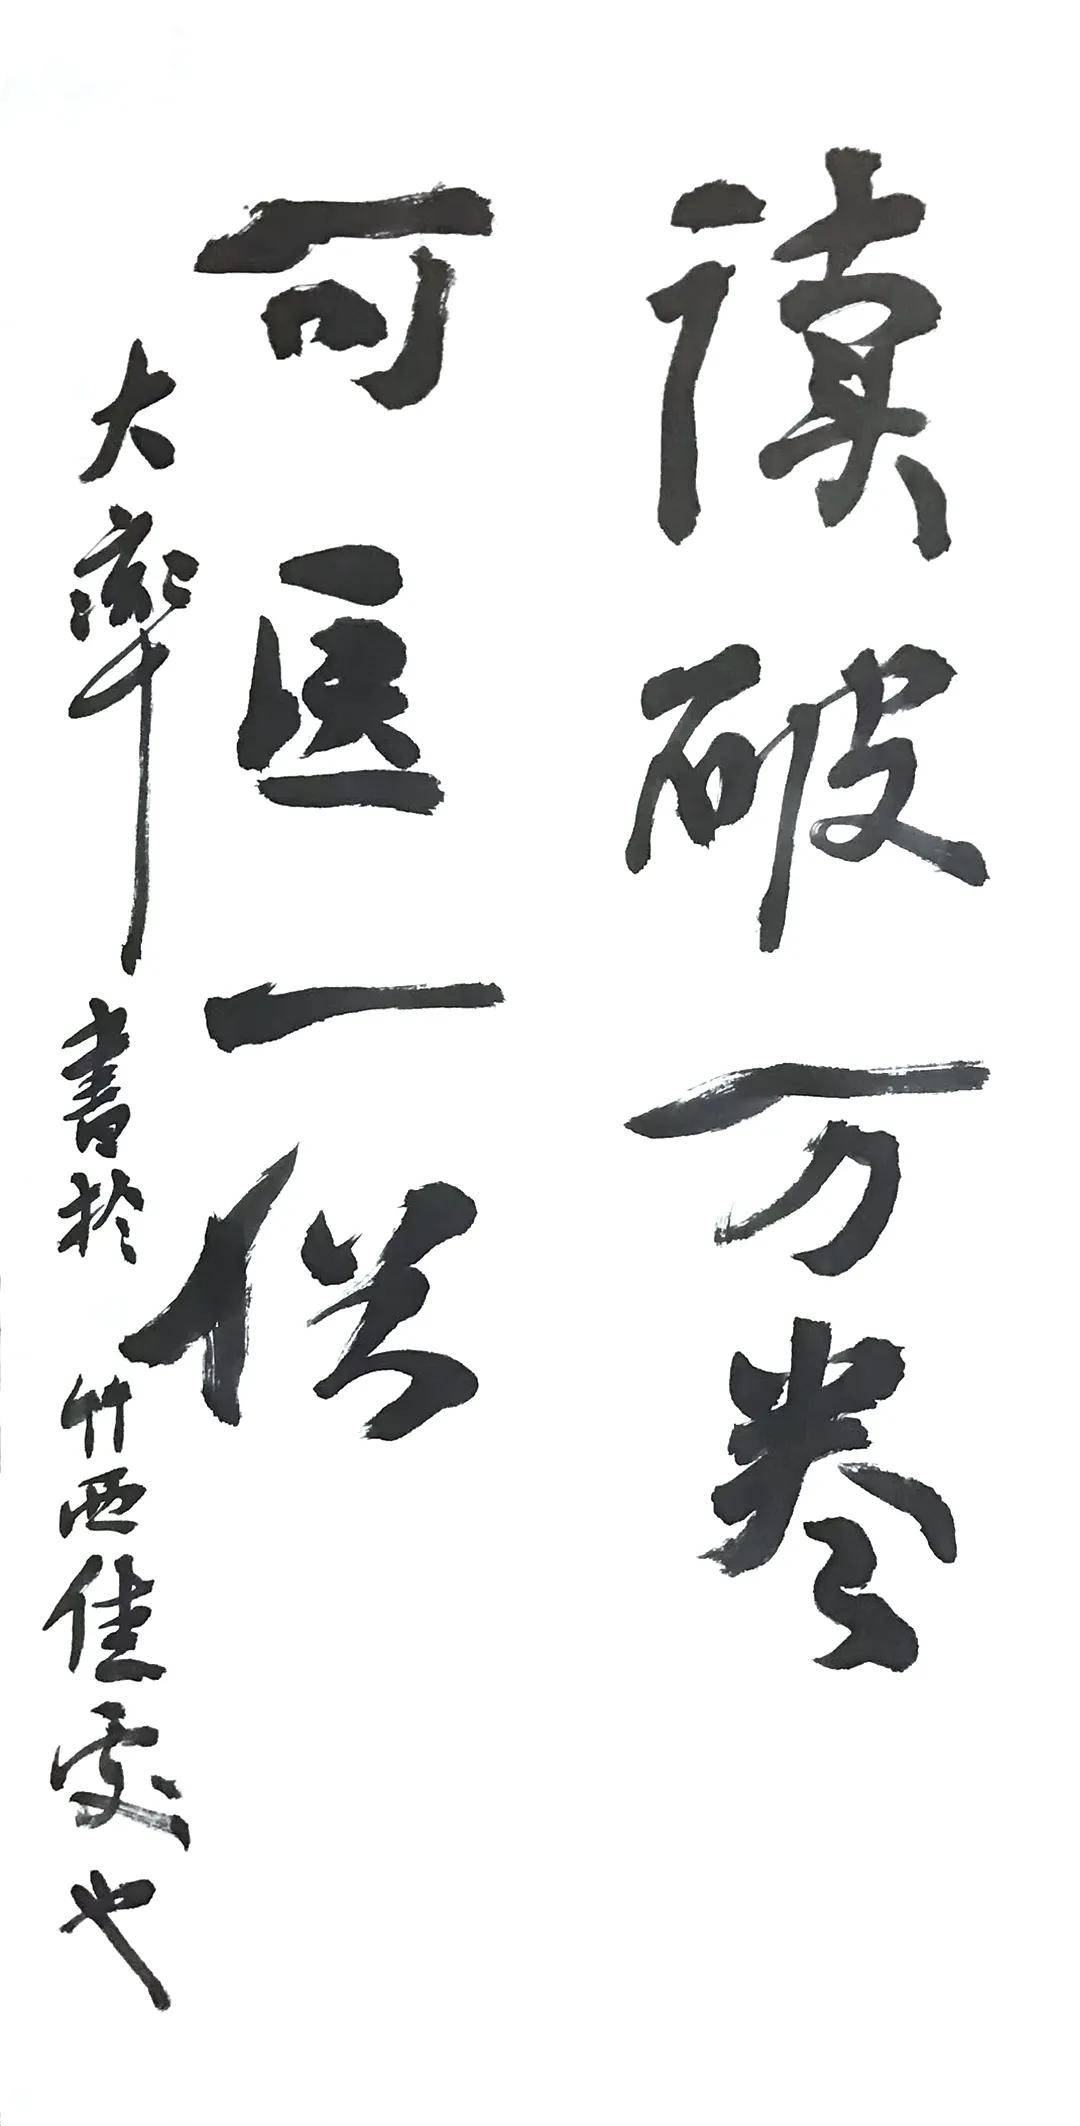 读破万卷
可医一俗
大率書於竹西佳處也